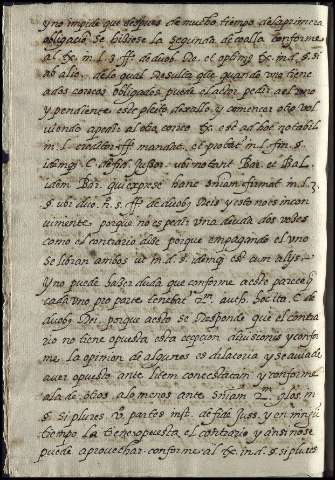 y no impide que despues de mucho tiempo de la primera
obligacio se hiziese la segunda de
al tx. m. l. 3. ff. de duob. Re. et optimg tx. m. d. §. si
ab alio. delo qual Resulta que quando vno tiene
ados correos obligados puede el actor pedir a el vno
y pendiente este pleito dexallo y comenzar otro vol
viendo apedir al otro correo tx. est ad hoc notabil
m. l. creditor ff. mandat. et probat m. l. fin. §.
idemqz C. de fide Jussor. ubi notant Bar. et Bal.
idem Bar. qui expresse hanc sniam firmat m. l. 3.
§. ubi duo. n. 5. ff. de duobg Reis y esto no es incon
viniente porque no es pedir vna deuda dos vezes
como el contrario dize porque en pagando el vno
se libran ambos ut m. d. §. idemqz est cum
y no puede hazer duda que conforme a esto parece q
cada vno pro parte tenebat auth. hoc ita. C. de
duobg Re. porque a esto se Responde que el contra
rio no tiene opuesta esta excepcion diuisionis y confor
me la opinion de algunos es dilatoria y se auia de
auer opuesto ante litem contestatam y conforme
ala de otros alomenos ante sniam glos. m
§. si plures partes inst. de fide Juss. y en ningu
tiempo la tiene opuesta el contrario y ansi no se
puede aprovechar conforme al tx. in d. §. si plures